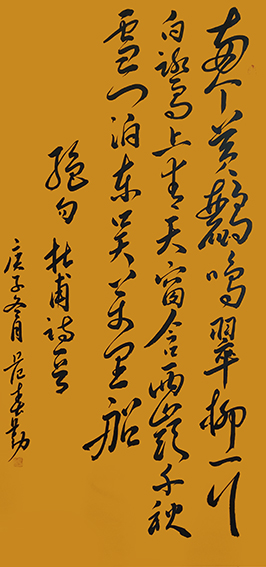 两个黄鸝鸣翠柳一行
白鹭上青天窗含西嶺千秋
雪门泊东吴万里船
絕句 杜甫诗一首
庚子冬月 范春